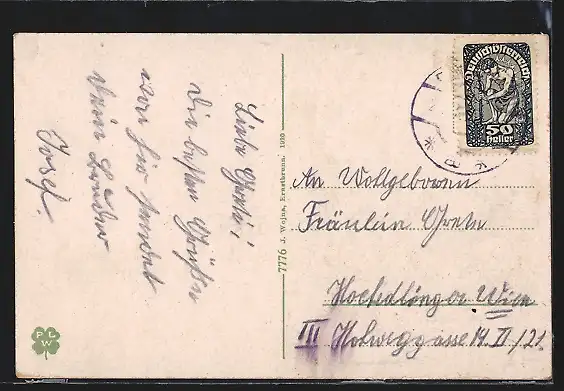 Liebe Gretl!
Die besten Grüße
von hir sendet
Dein Bruder
Josef.
7776 J. Wojna, Ernstbrunn. 1920
PLW
Deutschösterreich
50
Heller
An Wohlgeboren
Fräulein Grete
Hochedlinger Wien
III Hohweggasse 14. II/21.